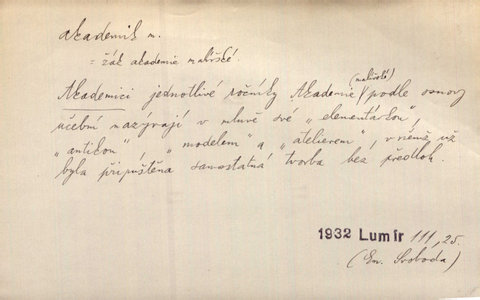 akademik m.
= žák akademie malířské.
Akademici jednotlivé ročníky Akademie (malířské) podle osnovy
učební nazývají v mluvě své „elementárkou",
„antikou", „modelem" a „atelierem", v němž už
byla připuštěna samostatná tvorba bez předloh.
1932 Lumír 111, 25.
(Em. Svoboda)